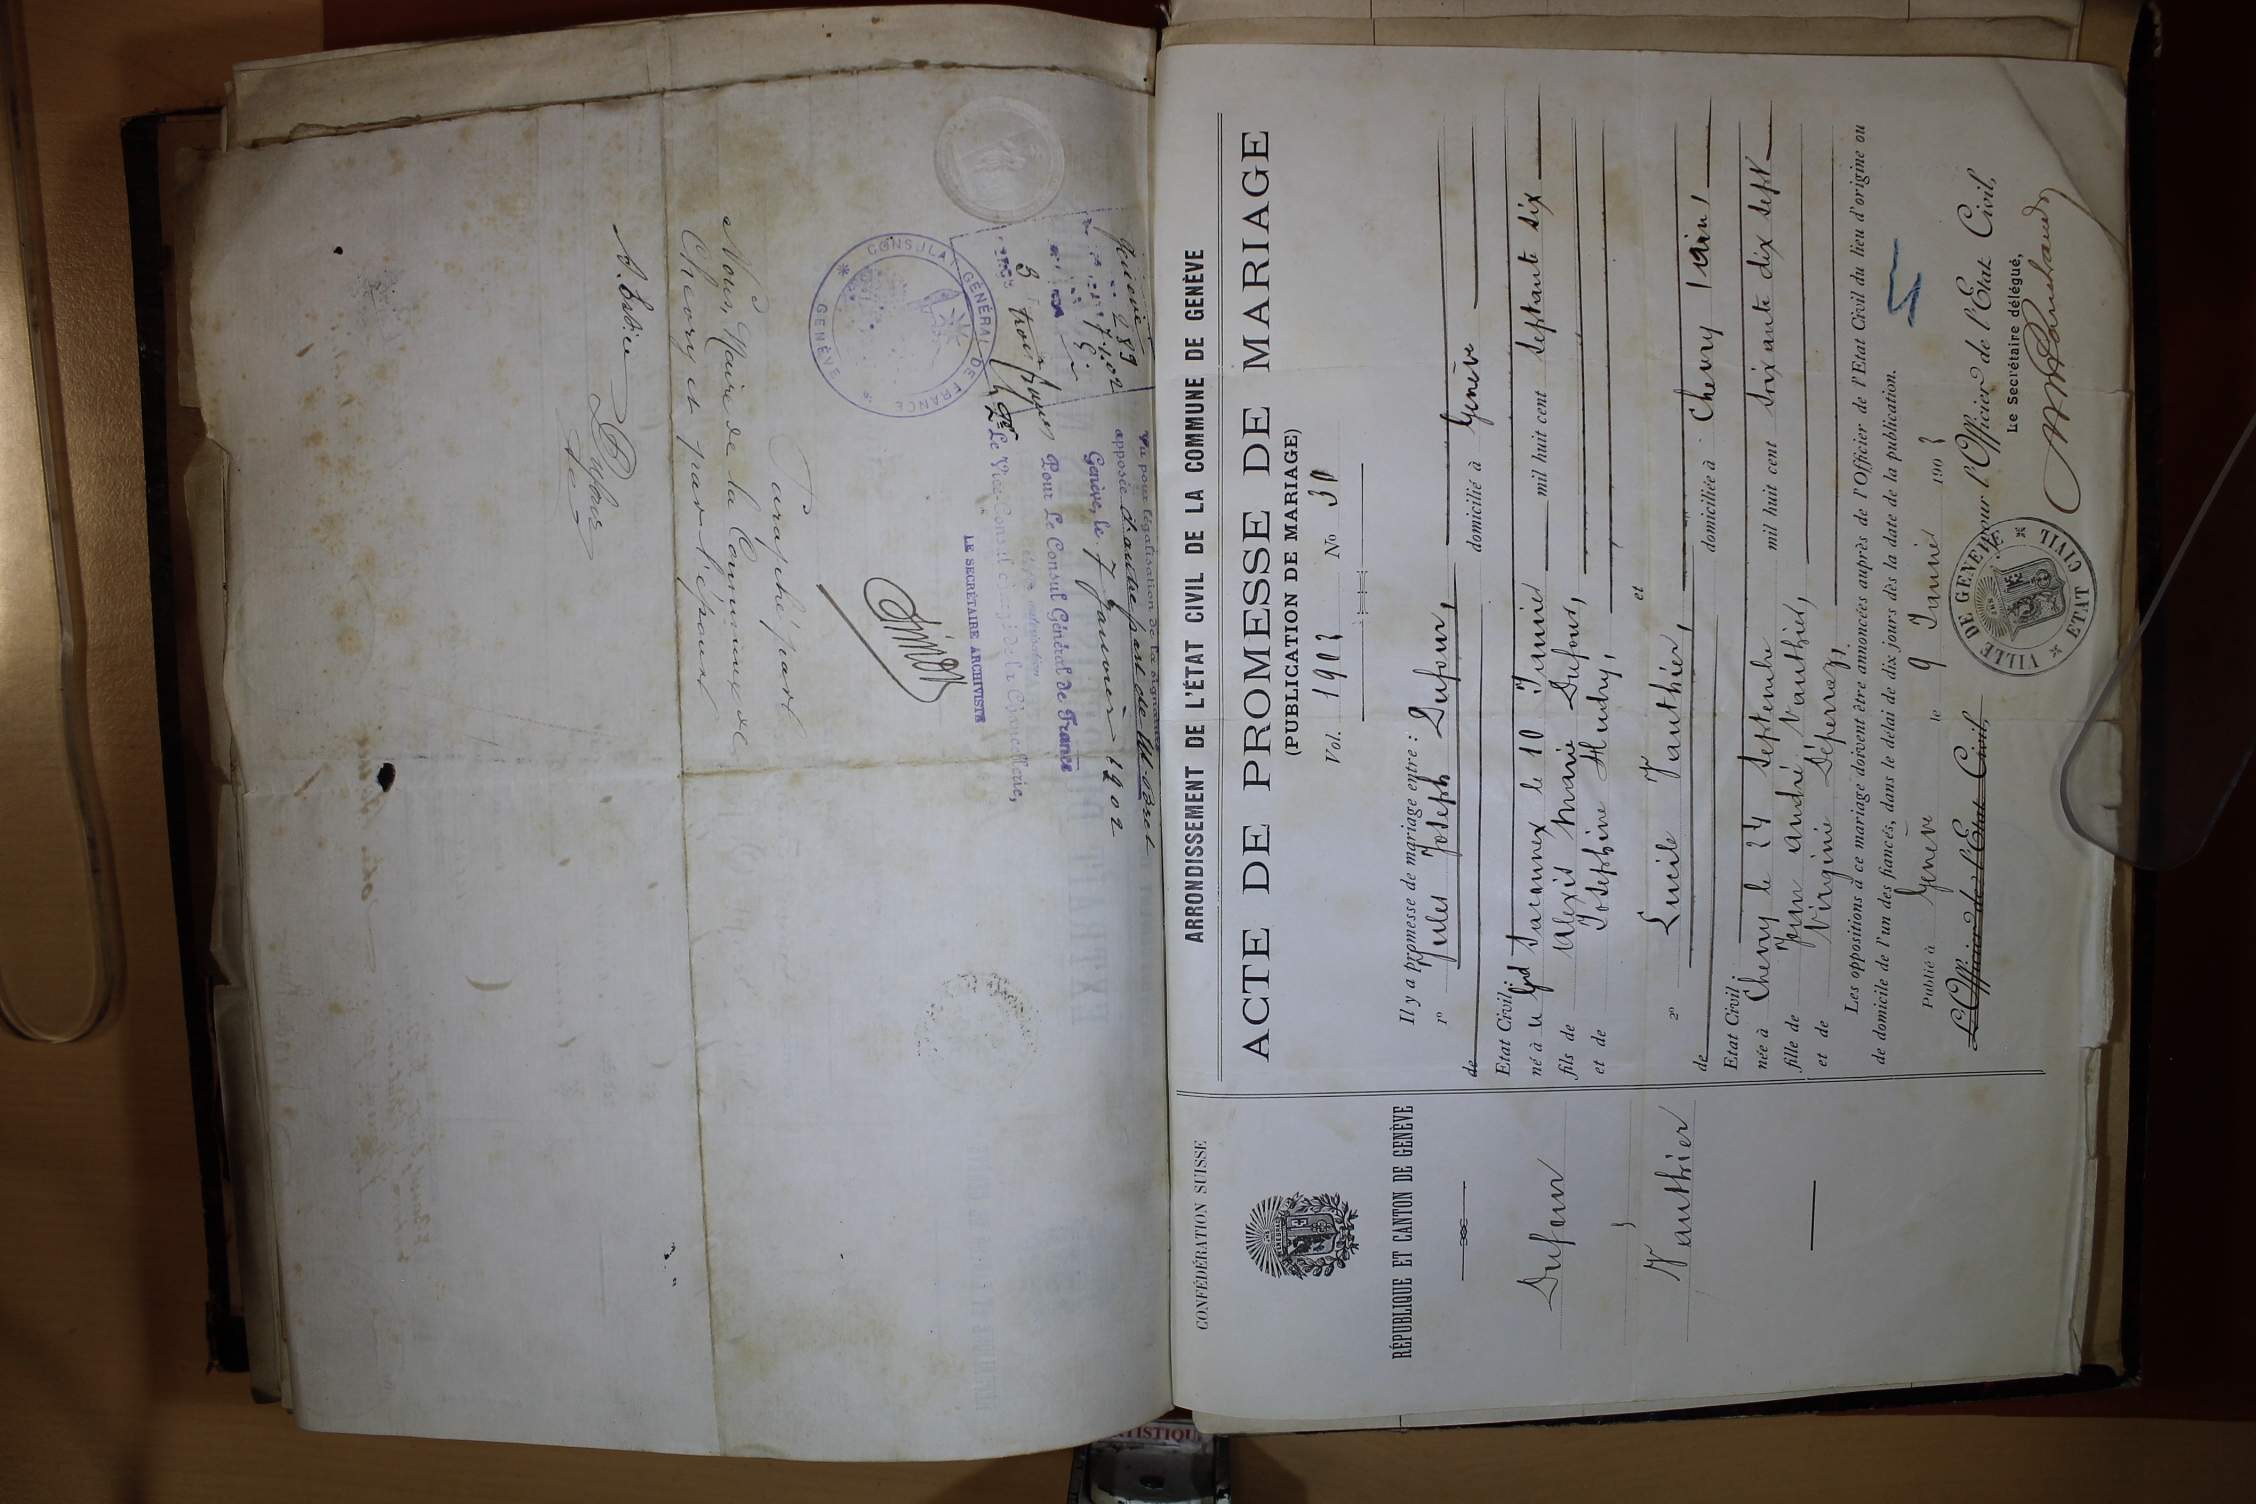 Vu pour légalisation de la signature
apposée d'autre part de M.
Genève, le 7 Janvier 1902
Pour Le Consul Général de France
Le Vice-Consul chargé de la Chancellerie,
LE SECRÉTAIRE ARCHIVISTE
CONSULAT GÉNÉRAL DE FRANCE
GENÈVE
Paraphé par
Nous, Maire de la Commune de
Chevry et par l'époux
Dufour
CONFÉDÉRATION SUISSE
RÉPUBLIQUE ET CANTON DE GENÈVE
Dufour
Vauthier
ARRONDISSEMENT DE L'ÉTAT CIVIL DE LA COMMUNE DE GENÈVE
ACTE DE PROMESSE DE MARIAGE
(PUBLICATION DE MARIAGE)
Vol. 1903 No 30
Il y a promesse de mariage entre :
1º Jules Joseph Dufour,
de domicilié à Genève
Etat Civil:
né à au Gd Saconnex le 10 Janvier mil huit cent septante six
fils de Alexis Marie Dufour,
et de Josephine Hudry,
et
2º Lucile Vauthier,
de domiciliée à Chevry (Ain)
Etat Civil
née à Chevry le 24 Septembre mil huit cent soixante dix sept
fille de Jean André Vauthier,
et de Virginie Déperraz,
Les oppositions à ce mariage doivent être annoncées auprès de l'Officier de l'Etat Civil du lieu d'origine ou
de domicile de l'un des fiancés, dans le délai de dix jours dès la date de la publication.
5
Publié à Genève le 9 Janvier 1903
L'Officier de l'Etat Civil,
Pour l'Officier de l'Etat Civil,
Le Secrétaire délégué,
VILLE DE GENEVE
ETAT CIVIL